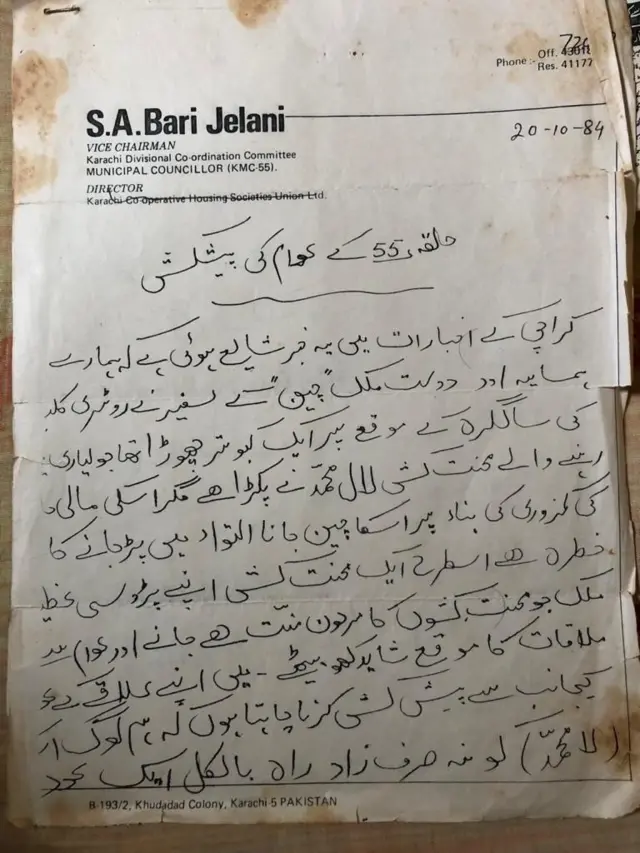 Phone :- Off. 43011
726
Res. 41177
S.A.Bari Jelani
VICE CHAIRMAN
Karachi Divisional Co-ordination Committee
MUNICIPAL COUNCILLOR (KMC-55).
DIRECTOR
Karachi Co-operative Housing Societies Union Ltd.
20-10-84
حلقہ 55 کے عوام کی پیشکش
کراچی کے اخبارات میں یہ خبر شایع ہوئی ہے کہ ہمارے
ہمسایہ اور دوست ملک "چین" کے سفیر نے روٹری کلب
کی سالگرہ کے موقع پر ایک کبوتر چھوڑا تھا جو لیاری
رہنے والے محنت کش لال محمد نے پکڑا ھے مگر اسکی مالی
کی کمزوری کی بناء پر اسکا چین جانا التواد میں پڑجانے کا
خطرہ ھے اسطرح ایک محنت کش اپنے پڑوسی
ملک جو محنت کشوں کا مرہون منّت ھے جانے اور عوام سے
ملاقات کا موقع شاید کھو بیٹھے - میں اپنے علاقے کے
کیجانب سے پیش کش کرنا چاہتا ہوں کہ ہم لوگ
(لا محمدّ) کو نہ صرف زاد راہ بالکل ایک
B-193/2, Khudadad Colony, Karachi-5 PAKISTAN